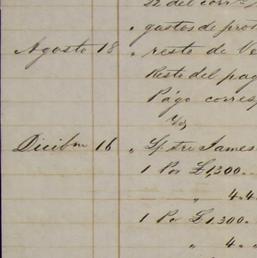 22 del corr.te
" gastos de prot
Agosto 18 " resto de Ve
Resto del pag
Págo corres
Dicibre 16 " Lp. Tre James
1 Por £1,300..
" 4.4.
1 Por £1.300..
" 4..